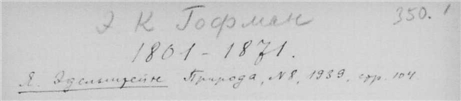 Э К Гофман 350.
1801-1871.
Я. Эдельштейн Природа, N8, 1939, стр. 104